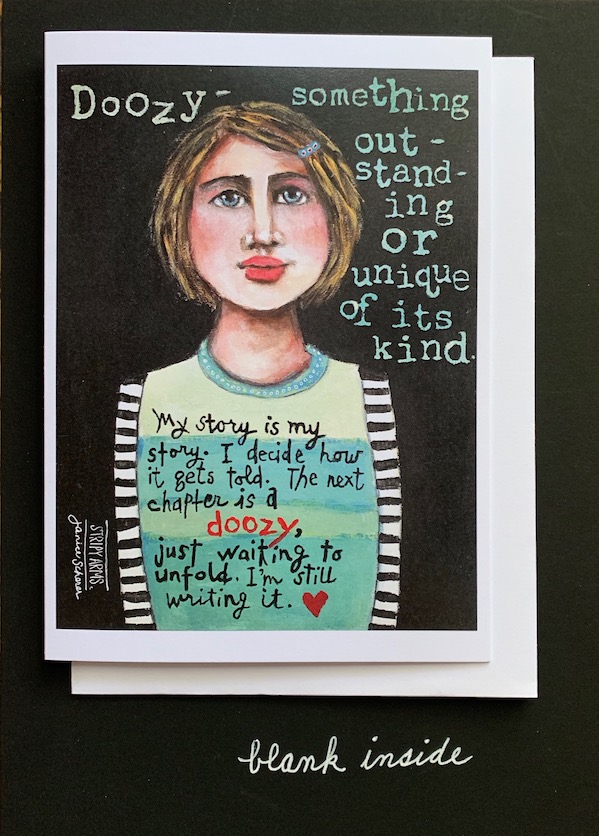 Doozy - something
out-
stand-
ing
or
unique
of its
kind.
My story is my
story. I decide how
it gets told. The next
chapter is a
doozy,
just waiting to
unfold. I'm still
writing it.
STRIPY ARMS.
Janice Scherer
blank inside